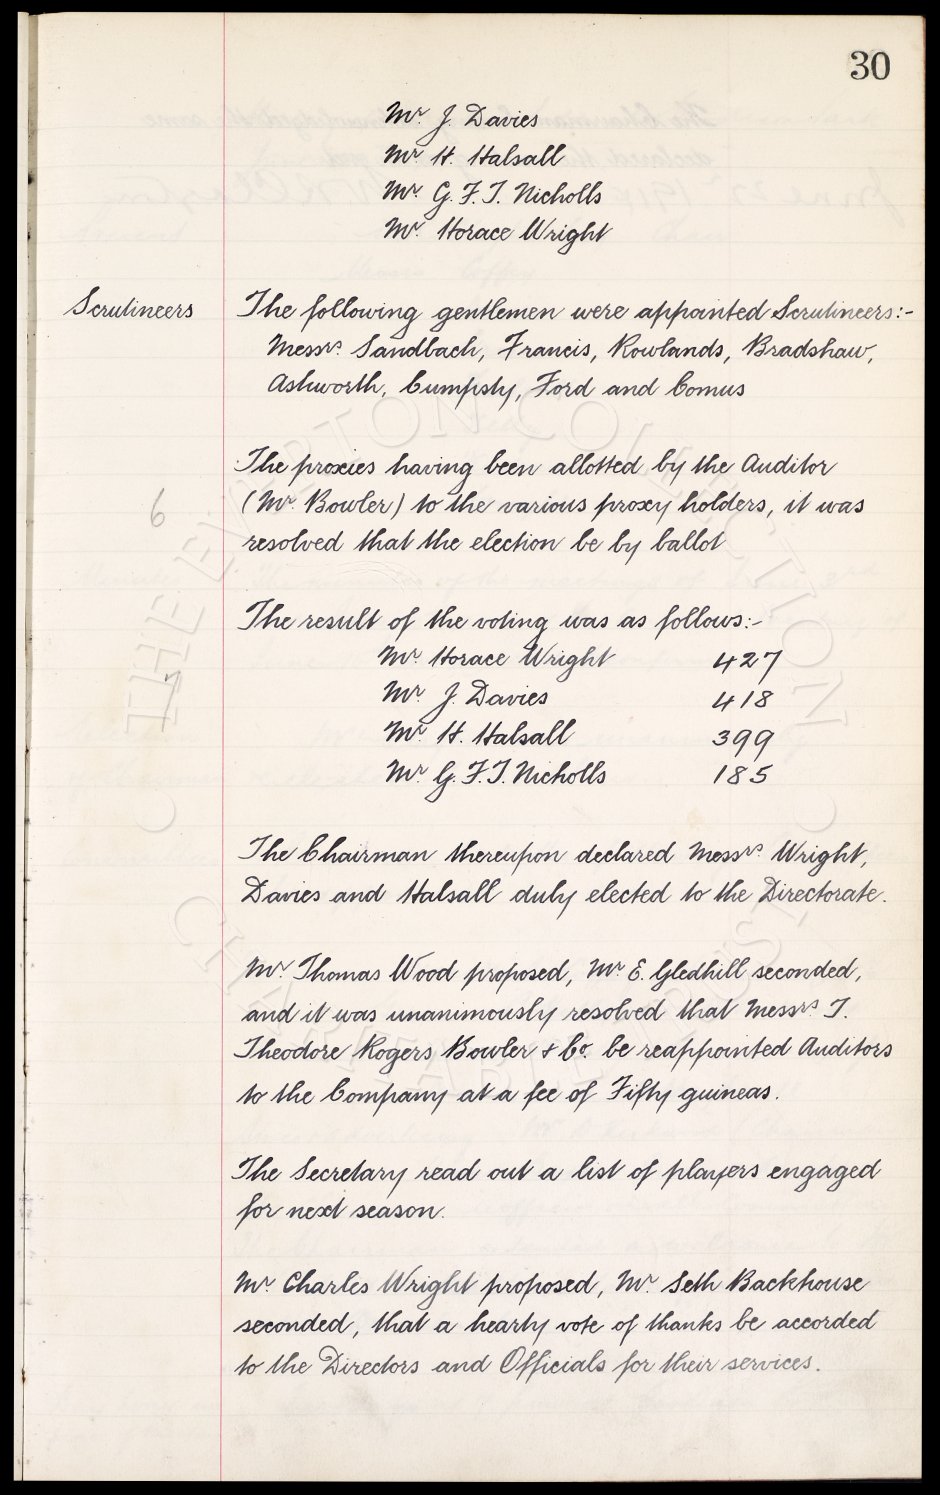 30
Mr. J. Davies
Mr. H. Halsall
Mr. G. F. T. Nicholls
Mr. Horace Wright
Scrutineers
The following gentlemen were appointed Scrutineers:-
Messrs. Sandbach, Francis, Rowlands, Bradshaw,
Ashworth, Cumpsty, Ford and Comus
The proxies having been allotted by the Auditor
(Mr. Bowler) to the various proxy holders, it was
resolved that the election be by ballot
6
The result of the voting was as follows:-
Mr. Horace Wright 427
Mr. J. Davies 418
Mr. H. Halsall 399
Mr. G. F. T. Nicholls 185
The Chairman thereupon declared Messrs. Wright,
Davies and Halsall duly elected to the Directorate.
Mr. Thomas Wood proposed, Mr. E. Gledhill seconded,
and it was unanimously resolved that Messrs T.
Theodore Rogers Bowler & Co. be reappointed Auditors
to the Company at a fee of Fifty guineas.
The Secretary read out a list of players engaged
for next season.
Mr. Charles Wright proposed, Mr. Seth Backhouse
seconded, that a hearty vote of thanks be accorded
to the Directors and Officials for their services.
THE EVERTON COLLECTION
CHARITABLE TRUST